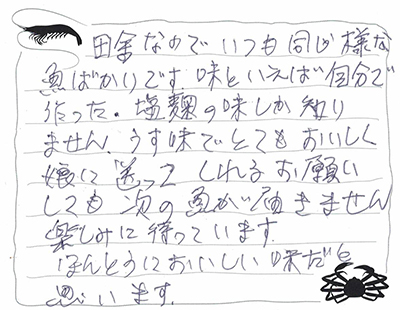 田舎なのでいつも同じ様な
魚ばかりです 味といえば自分で
作った・塩麹の味しか知り
ません、うす味でとてもおいしく
娘に送ってくれるお願い
しても次の魚が届きません
楽しみに待っています。
ほんとうにおいしい味だと
思います。